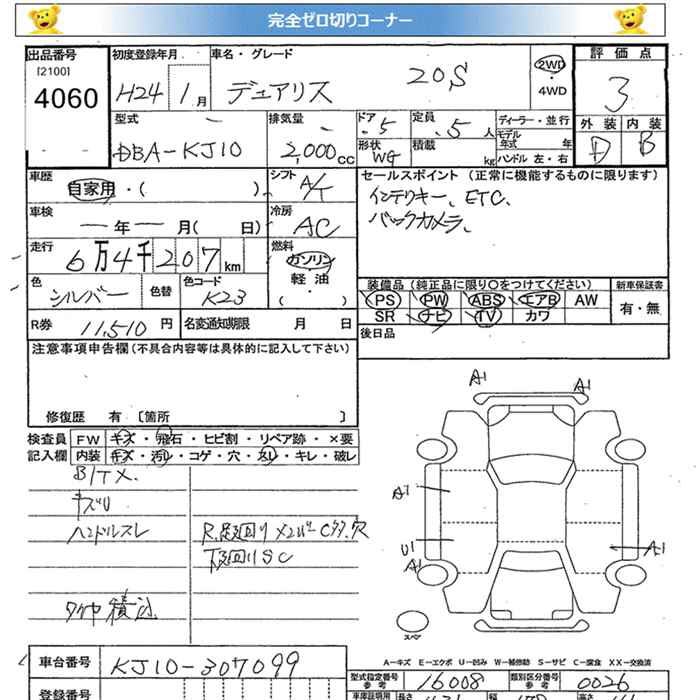 完全ゼロ切りコーナー
出品番号 初度登録年月 車名・グレード 評価点
[2100] 4060
H24 1月 デュアリス 20S 2WD・4WD 3
型式 排気量 ドア 定員 ディーラー・並行 外装 内装
DBA-KJ10 2,000cc .5 .5人 モデル年式 年 D B
形状 WG 積載 kg ハンドル 左・右
車歴 シフト セールスポイント (正常に機能するものに限ります)
自家用・( ) A/T インテリキー、ETC、
車検 冷房 バックカメラ、
ー年ー月( 日) AC
走行 燃料
6万4千207km ガソリン
色 色替 色コード 軽油・( ) 装備品(純正品に限り○をつけてください) 新車保証書
シルバー K23 PS PW ABS エアB AW 有・無
R券 11,510円 名変通知期限 月 日 SR ナビ TV カワ
後日品
注意事項申告欄(不具合内容等は具体的に記入して下さい)
修復歴 有 [箇所 ]
検査員 FW キズ・飛石・ヒビ割・リペア跡・×要
記入欄 内装 キズ・汚レ・コゲ・穴・スレ・キレ・破レ
A1 A1
BITX.
キズU
ハンドルスレ
A1
下廻りSC
U1 A1
A1
積込
スペア
A-キズ E-エクボ U-凹み W-補修跡 S-サビ C-腐食 XX-交換済
車台番号 KJ10-307099
型式指定番号 参考 16008 類別区分番号 参考 0026
登録番号 車庫証明用 長さ 幅 高さ